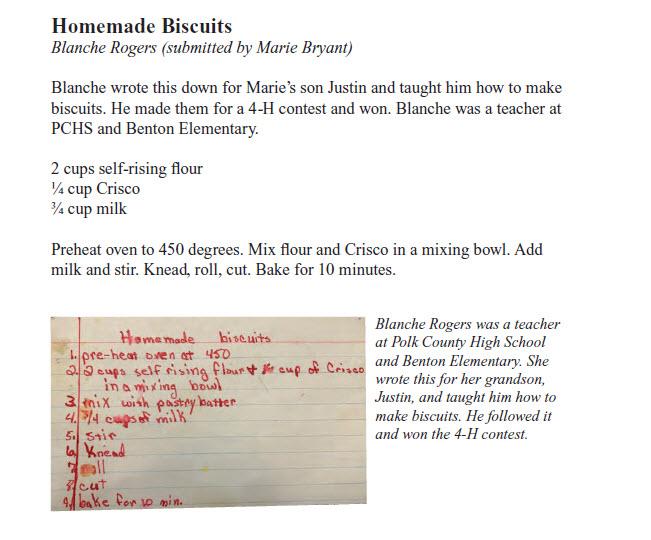 Homemade Biscuits
Blanche Rogers (submitted by Marie Bryant)
Blanche wrote this down for Marie’s son Justin and taught him how to make
biscuits. He made them for a 4-H contest and won. Blanche was a teacher at
PCHS and Benton Elementary.
2 cups self-rising flour
¼ cup Crisco
¾ cup milk
Preheat oven to 450 degrees. Mix flour and Crisco in a mixing bowl. Add
milk and stir. Knead, roll, cut. Bake for 10 minutes.
Homemade biscuits
1. pre-heat oven at 450
2. 2 cups self rising flour + cup of Crisco
in a mixing bowl
3. mix with pastry batter
4. 3/4 cups of milk
5. Stir
6. Knead
7. roll
8. cut
9. bake for 10 min.
Blanche Rogers was a teacher
at Polk County High School
and Benton Elementary. She
wrote this for her grandson,
Justin, and taught him how to
make biscuits. He followed it
and won the 4-H contest.